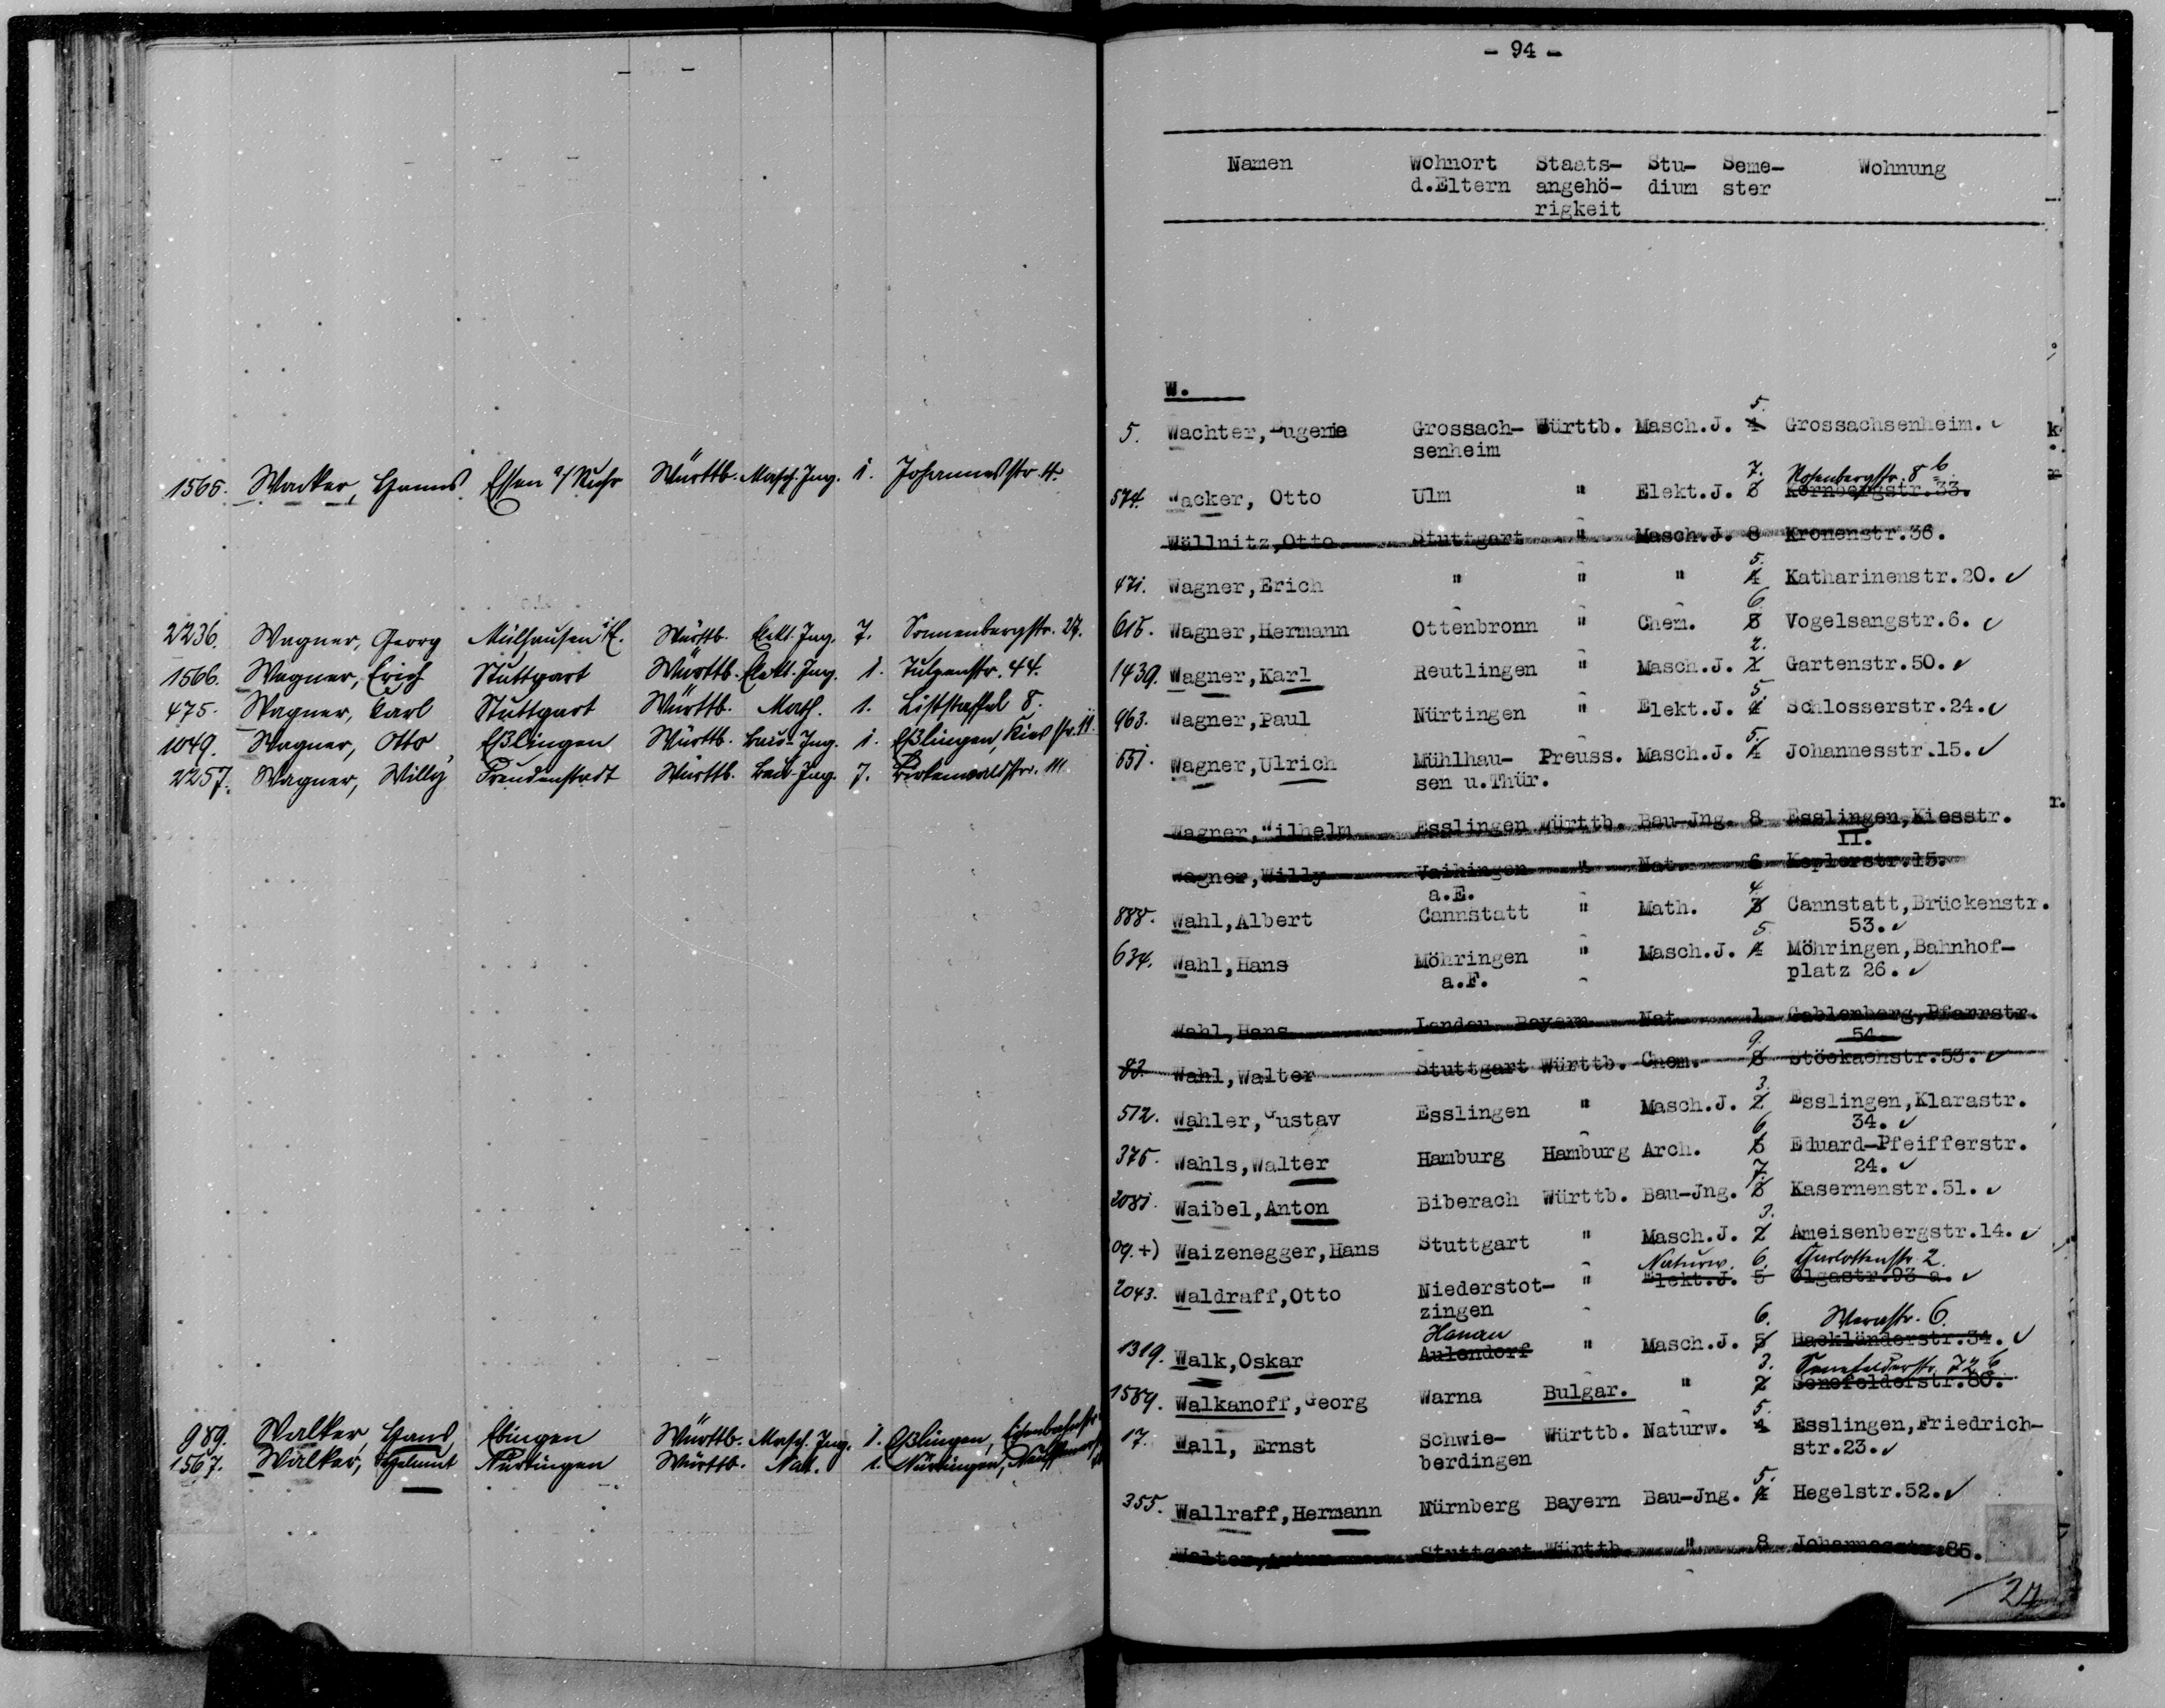 1565. Wacker, Hanns Essen a/Ruhr Württb. Masch. Ing. 1. Johannesstr. 11.
2236. Wagner, Georg Mülhausen i/E. Württb. Elekt. Ing. 7. Sonnenbergstr. 27.
1566. Wagner, Erich Stuttgart Württb. Elekt. Ing. 1. 44.
475. Wagner, Karl Stuttgart Württb. Math. 1. Liststaffel 8.
1049. Wagner, Otto Eßlingen Württb. Bau-Ing. 1. Eßlingen, Kiesstr. 11.
2257. Wagner, Willy Freudenstadt Württb. Bau-Ing. 7. Birkenwaldstr. 111.
989. Walker, Hans Ebingen Württb. Masch. Ing. 1. Eßlingen,
1567. Walker, Helmut Nürtingen Württb. Nat. 1. Nürtingen,
- 94 -
Namen Wohnort Staats- Stu- Seme- Wohnung
d.Eltern angehö- dium ster
rigkeit
W.
5.
5. Wachter, Eugenie Grossach- Württb. Masch.J. 4 Grossachsenheim.
senheim
7. Rosenbergstr. 8 b
574. Wacker, Otto Ulm " Elekt.J. 8 Kornbergstr.33.
Wällnitz,Otto Stuttgart " Masch.J. 8 Kronenstr.36.
5.
471. Wagner,Erich " " " 4 Katharinenstr.20.
6.
615. Wagner,Hermann Ottenbronn " Chem. 8 Vogelsangstr.6.
2.
1439. Wagner,Karl Reutlingen " Masch.J. 1 Gartenstr.50.
5.
963. Wagner,Paul Nürtingen " Elekt.J. 4 Schlosserstr.24.
5.
651. Wagner,Ulrich Mühlhau- Preuss. Masch.J. 4 Johannesstr.15.
sen u.Thür.
Wagner,Wilhelm Esslingen Württb. Bau-Jng. 8 Esslingen,Kiesstr.
II.
Wagner,Willy Vaihingen " Nat. 6 Keplerstr.15.
a.E.
4.
888. Wahl,Albert Cannstatt " Math. 3 Cannstatt,Brückenstr.
53.
5.
634. Wahl,Hans Möhringen " Masch.J. 4 Möhringen,Bahnhof-
a.F. platz 26.
Wahl,Hans Landau Bayern Nat. 1 Gablenberg,Pfarrstr.
54.
9.
82. Wahl,Walter Stuttgart Württb. Chem. 8 Stöckachstr.53.
3.
512. Wahler,Gustav Esslingen " Masch.J. 2 Esslingen,Klarastr.
34.
6
375. Wahls,Walter Hamburg Hamburg Arch. 5 Eduard-Pfeifferstr.
24.
7.
2081. Waibel,Anton Biberach Württb. Bau-Jng. 8 Kasernenstr.51.
3.
09.+) Waizenegger,Hans Stuttgart " Masch.J. 2 Ameisenbergstr.14.
Naturw. 6. Charlottenstr. 2.
2043. Waldraff,Otto Niederstot- " Elekt.J. 5 Olgastr.93 a.
zingen
Hanau 6. Werastr. 6.
1319. Walk,Oskar Aulendorf " Masch.J. 5 Hackländerstr.34.
3. Senefelderstr. 72 b
1589. Walkanoff,Georg Warna Bulgar. " 2 Senefelderstr.80.
5.
17. Wall, Ernst Schwie- Württb. Naturw. 4 Esslingen,Friedrich-
berdingen str.23.
5.
355. Wallraff,Hermann Nürnberg Bayern Bau-Jng. 4 Hegelstr.52.
Walter,Artur Stuttgart Württb. " 8 Johannesstr.85.